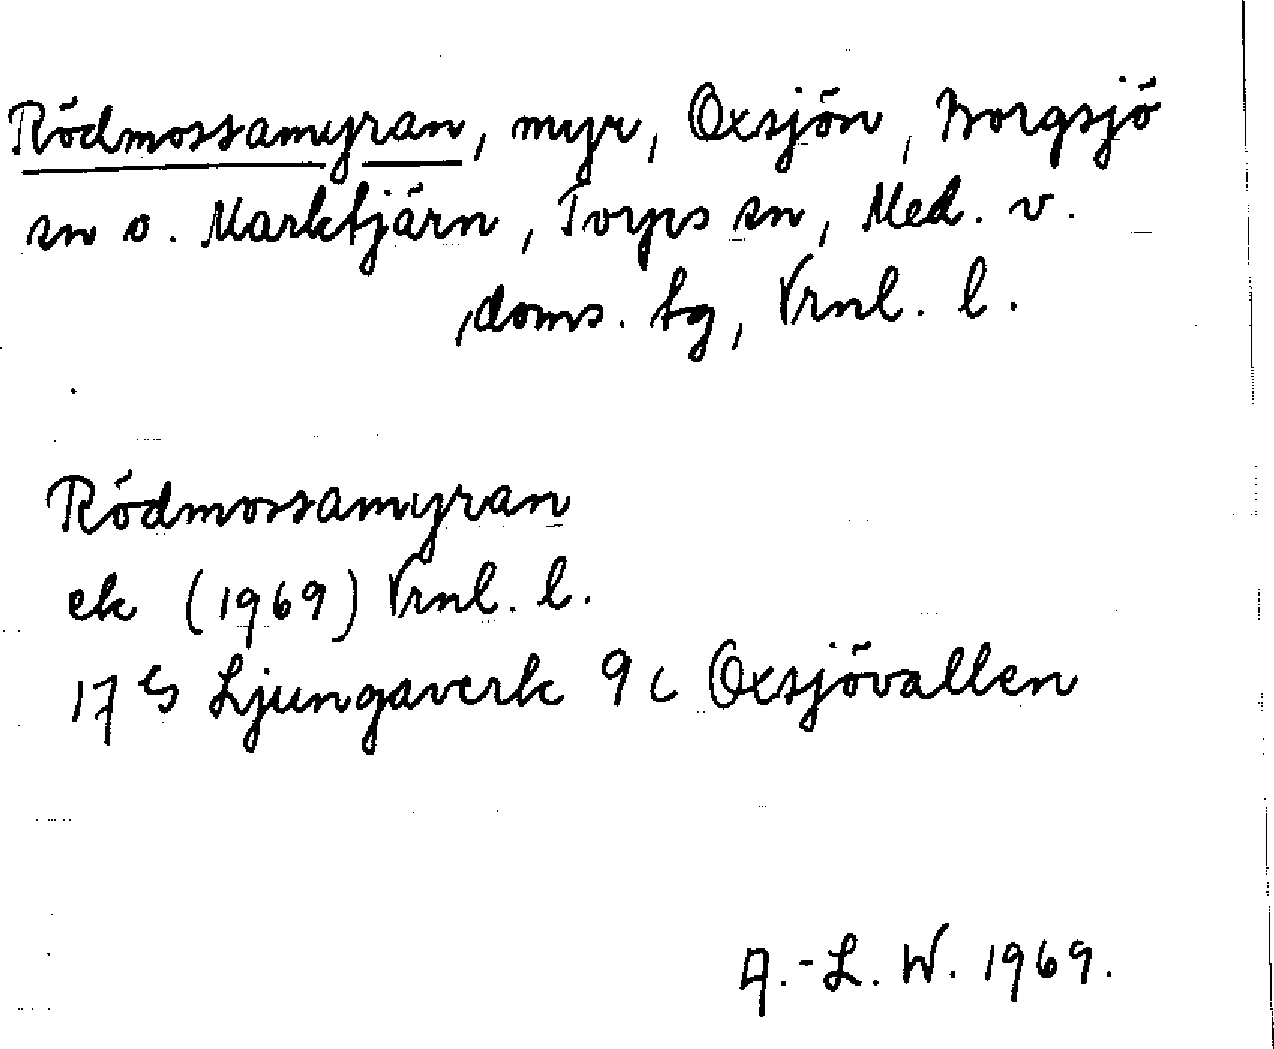 Rödmossamyran, myr, Oxsjön, Borgsjö
sn o. Marktjärn, Torps sn, Med. v.
doms. tg, Vrnl. l.
Rödmossamyran
ek (1969) Vrnl. l.
17 G Ljungaverk 9 c Oxsjövallen
A.-L. W. 1969.